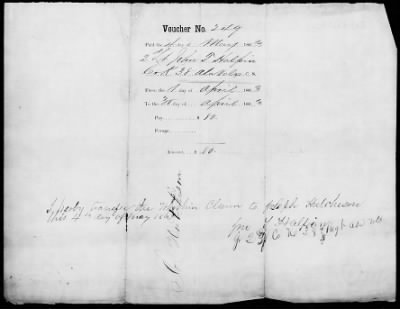 Voucher No. 249
Paid the May 186
2 Lt John T Halpin
Co. K 38 Ala Vols C. S.
From the 1 day of April 186
To the 30 day of April 186
Pay, $ 80
Forage,
Amount, $ 80
I hereby transfer the within Claim to Joseph Hutchinson
this 4th day of May 186
Jno T Halpin
2 Lt Co K 38 Regt Ala Vols